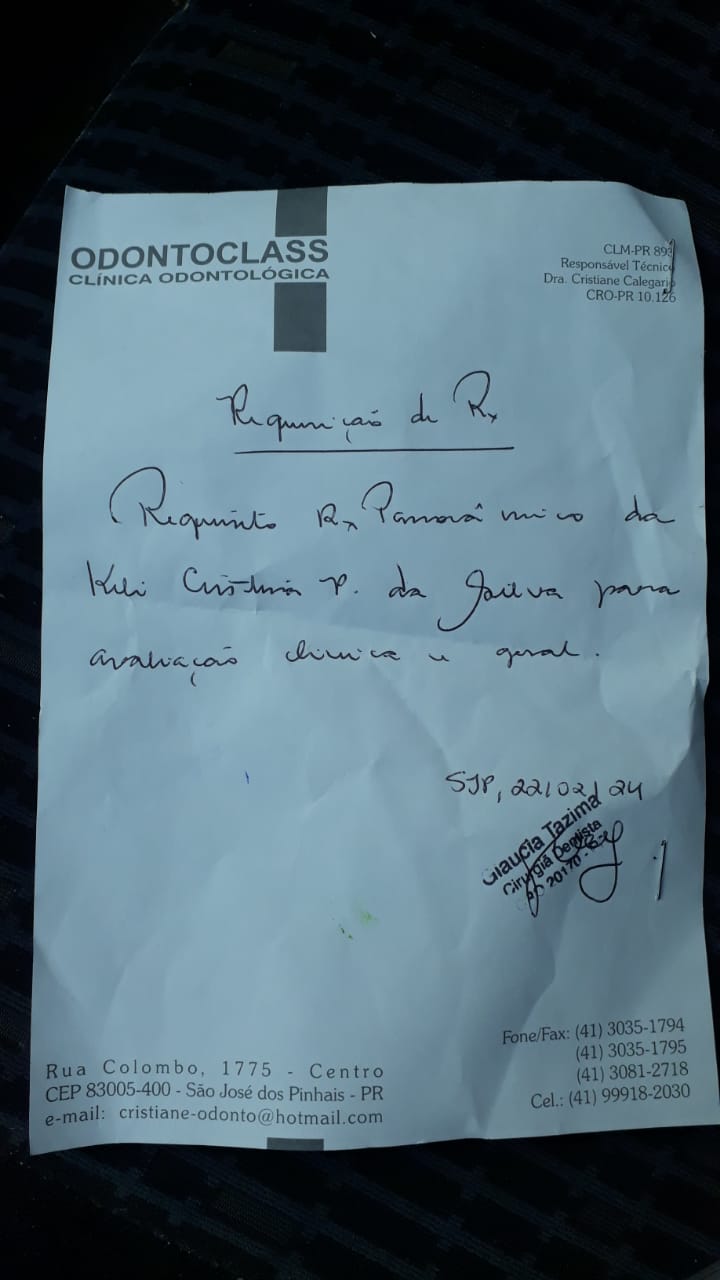 ODONTOCLASS
CLÍNICA ODONTOLÓGICA
CLM-PR 893
Responsável Técnico
Dra. Cristiane Calegari
CRO-PR 10.126
Requisição de Rx
Requisito Rx Panorâmico da
Keli Cristina P. da Silva para
avaliação clinica e geral.
SJP, 22/02/24
Glaucia Tazima
Cirurgiã Dentista
20170
Fone/Fax: (41) 3035-1794
(41) 3035-1795
(41) 3081-2718
Cel.: (41) 99918-2030
Rua Colombo, 1775 - Centro
CEP 83005-400 - São José dos Pinhais - PR
e-mail: cristiane-odonto@hotmail.com